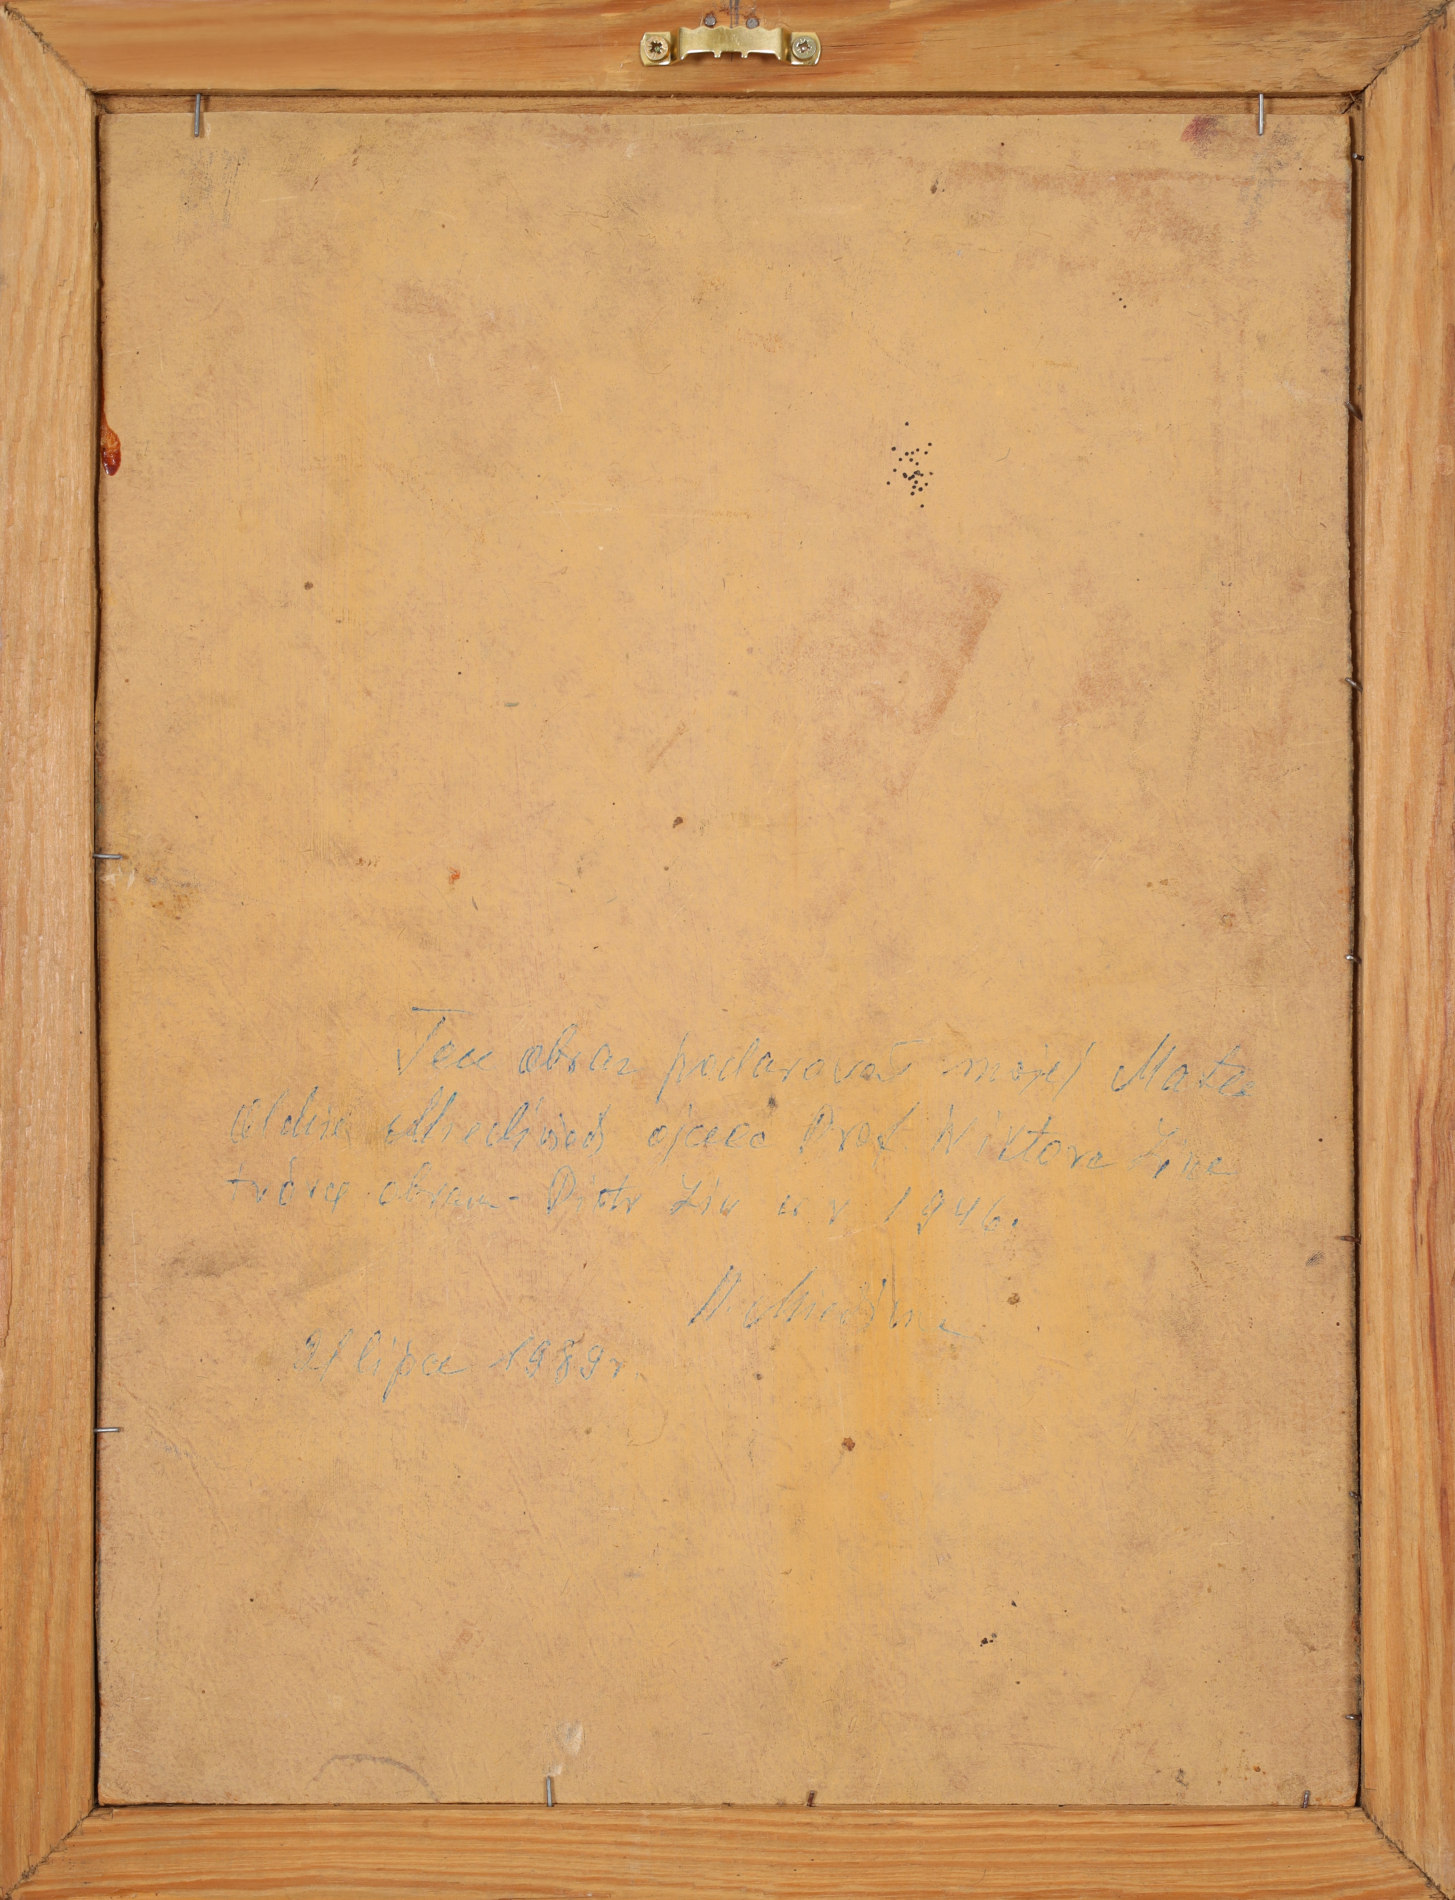 Ten obraz podarował mojej Matce
ojciec Prof. Wiktora Zina
twórca obrazu - Piotr Zin w r 1946.
21 lipca 1989 r.